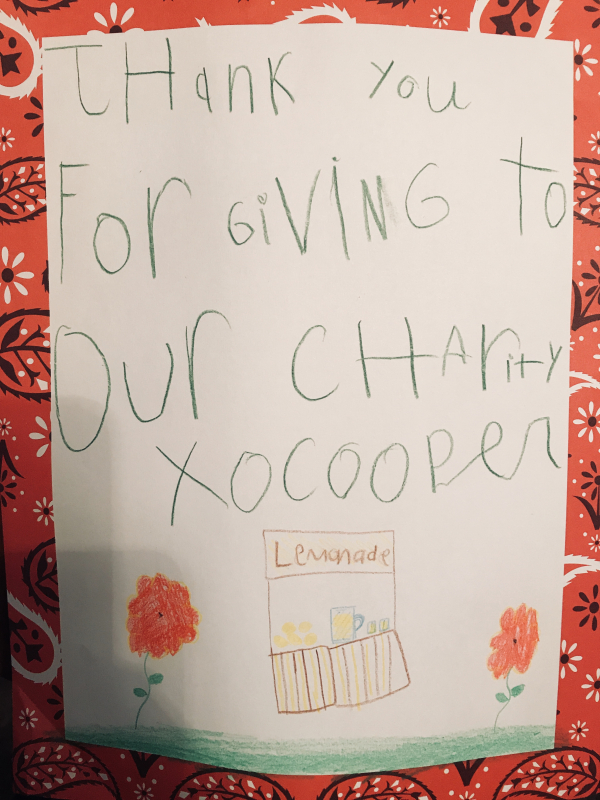 THank you
For GiViNG To
Our CHArity
XOCOOper
Lemonade